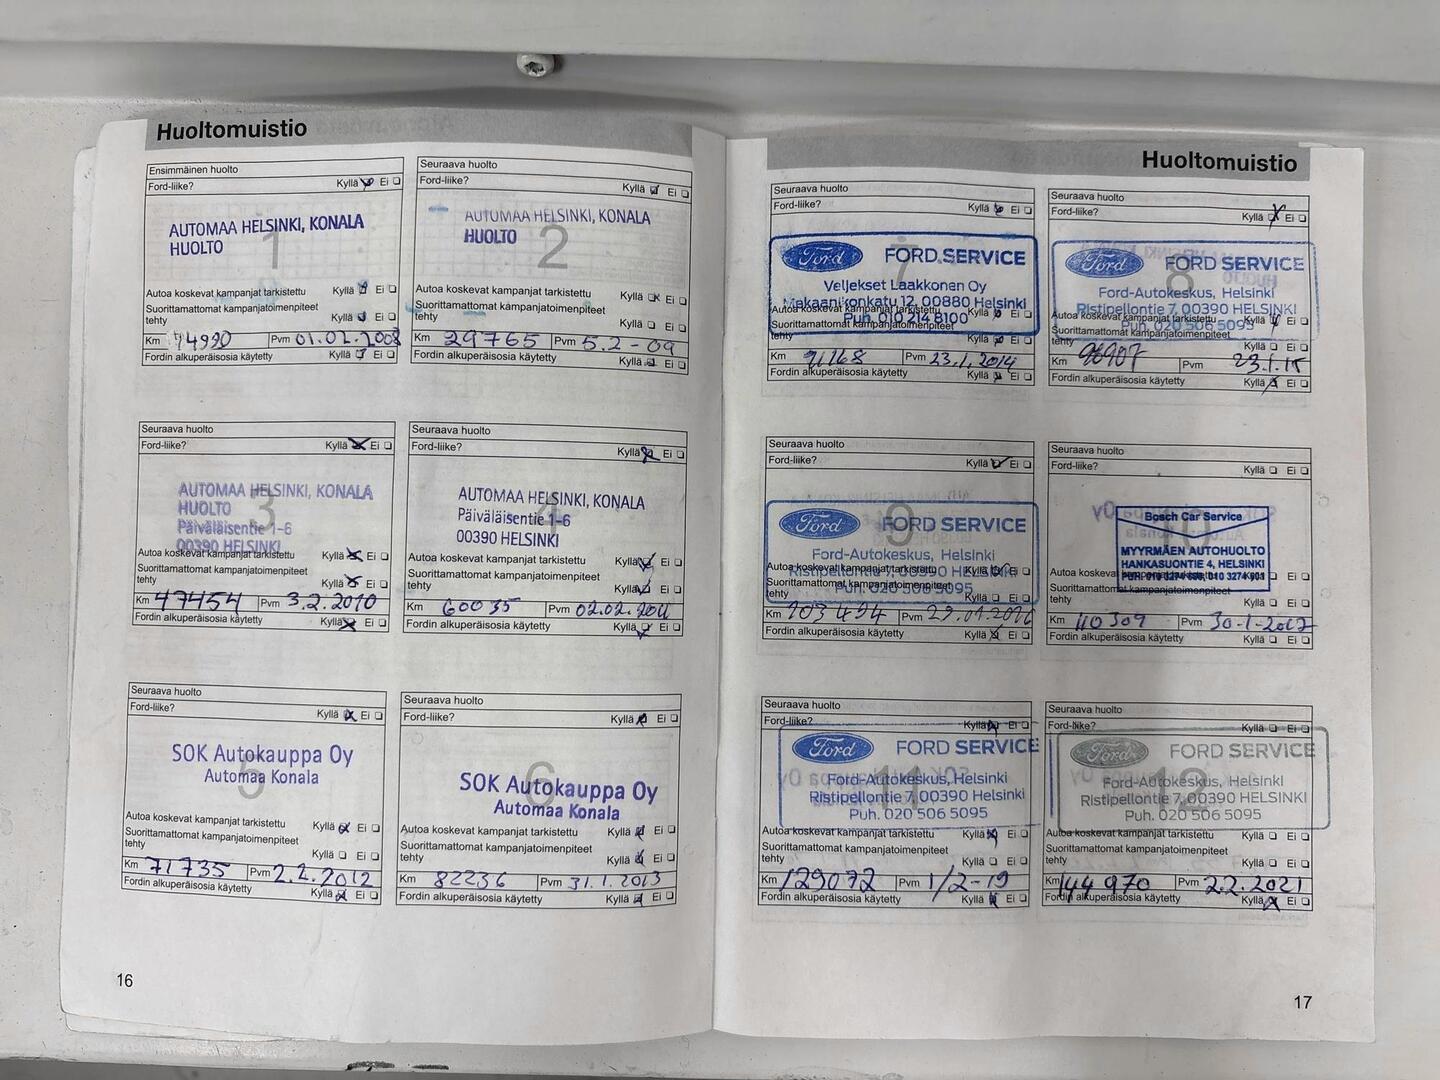 Huoltomuistio
Ensimmäinen huolto
Ford-liike? Kyllä Ei
1
AUTOMAA HELSINKI, KONALA
HUOLTO
Autoa koskevat kampanjat tarkistettu Kyllä Ei
Suorittamattomat kampanjatoimenpiteet
tehty Kyllä Ei
Km 14990 Pvm 01.02.2008
Fordin alkuperäisosia käytetty Kyllä Ei
Seuraava huolto
Ford-liike? Kyllä Ei
2
AUTOMAA HELSINKI, KONALA
HUOLTO
Autoa koskevat kampanjat tarkistettu Kyllä Ei
Suorittamattomat kampanjatoimenpiteet
tehty Kyllä Ei
Km 29765 Pvm 5.2-09
Fordin alkuperäisosia käytetty Kyllä Ei
Seuraava huolto
Ford-liike? Kyllä Ei
3
AUTOMAA HELSINKI, KONALA
HUOLTO
Päiväläisentie 1-6
00390 HELSINKI
Autoa koskevat kampanjat tarkistettu Kyllä Ei
Suorittamattomat kampanjatoimenpiteet
tehty Kyllä Ei
Km 47454 Pvm 3.2.2010
Fordin alkuperäisosia käytetty Kyllä Ei
Seuraava huolto
Ford-liike? Kyllä Ei
4
AUTOMAA HELSINKI, KONALA
Päiväläisentie 1-6
00390 HELSINKI
Autoa koskevat kampanjat tarkistettu Kyllä Ei
Suorittamattomat kampanjatoimenpiteet
tehty Kyllä Ei
Km 60035 Pvm 02.02.2011
Fordin alkuperäisosia käytetty Kyllä Ei
Seuraava huolto
Ford-liike? Kyllä Ei
5
SOK Autokauppa Oy
Automaa Konala
Autoa koskevat kampanjat tarkistettu Kyllä Ei
Suorittamattomat kampanjatoimenpiteet
tehty Kyllä Ei
Km 71735 Pvm 2.2.2012
Fordin alkuperäisosia käytetty Kyllä Ei
Seuraava huolto
Ford-liike? Kyllä Ei
6
SOK Autokauppa Oy
Automaa Konala
Autoa koskevat kampanjat tarkistettu Kyllä Ei
Suorittamattomat kampanjatoimenpiteet
tehty Kyllä Ei
Km 82236 Pvm 31.1.2013
Fordin alkuperäisosia käytetty Kyllä Ei
16
Huoltomuistio
Seuraava huolto
Ford-liike? Kyllä Ei
7
Ford FORD SERVICE
Veljekset Laakkonen Oy
Mekaanikonkatu 12, 00880 Helsinki
Puh. 010 214 8100
Autoa koskevat kampanjat tarkistettu Kyllä Ei
Suorittamattomat kampanjatoimenpiteet
tehty Kyllä Ei
Km 91168 Pvm 23.1.2014
Fordin alkuperäisosia käytetty Kyllä Ei
Seuraava huolto
Ford-liike? Kyllä Ei
8
Ford FORD SERVICE
Ford-Autokeskus, Helsinki
Ristipellontie 7, 00390 HELSINKI
Puh. 020 506 5095
Autoa koskevat kampanjat tarkistettu Kyllä Ei
Suorittamattomat kampanjatoimenpiteet
tehty Kyllä Ei
Km 98907 Pvm 23.1.15
Fordin alkuperäisosia käytetty Kyllä Ei
Seuraava huolto
Ford-liike? Kyllä Ei
9
Ford FORD SERVICE
Ford-Autokeskus, Helsinki
Ristipellontie 7, 00390 HELSINKI
Puh. 020 506 5095
Autoa koskevat kampanjat tarkistettu Kyllä Ei
Suorittamattomat kampanjatoimenpiteet
tehty Kyllä Ei
Km 103494 Pvm 29.01.2016
Fordin alkuperäisosia käytetty Kyllä Ei
Seuraava huolto
Ford-liike? Kyllä Ei
10
Bosch Car Service
MYYRMÄEN AUTOHUOLTO
HANKASUONTIE 4, HELSINKI
Autoa koskevat kampanjat tarkistettu Kyllä Ei
Suorittamattomat kampanjatoimenpiteet
tehty Kyllä Ei
Km 110309 Pvm 30-1-2017
Fordin alkuperäisosia käytetty Kyllä Ei
Seuraava huolto
Ford-liike? Kyllä Ei
11
Ford FORD SERVICE
Ford-Autokeskus, Helsinki
Ristipellontie 7, 00390 HELSINKI
Puh. 020 506 5095
Autoa koskevat kampanjat tarkistettu Kyllä Ei
Suorittamattomat kampanjatoimenpiteet
tehty Kyllä Ei
Km 129072 Pvm 1/2-19
Fordin alkuperäisosia käytetty Kyllä Ei
Seuraava huolto
Ford-liike? Kyllä Ei
12
Ford FORD SERVICE
Ford-Autokeskus, Helsinki
Ristipellontie 7, 00390 HELSINKI
Puh. 020 506 5095
Autoa koskevat kampanjat tarkistettu Kyllä Ei
Suorittamattomat kampanjatoimenpiteet
tehty Kyllä Ei
Km 144970 Pvm 2.2.2021
Fordin alkuperäisosia käytetty Kyllä Ei
17